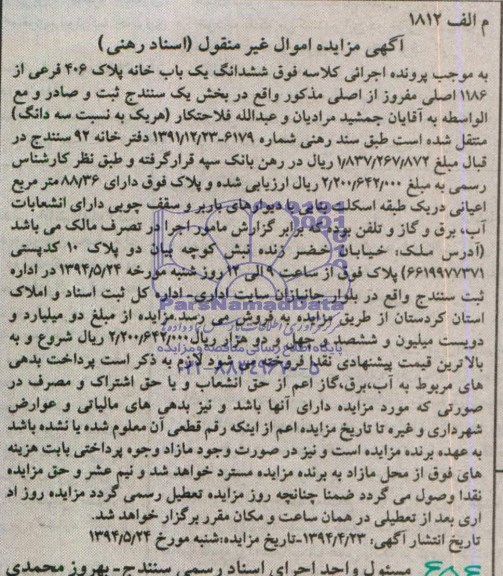 م الف ۱۸۱۲
آگهی مزایده اموال غیر منقول (اسناد رهنی)
به موجب پرونده اجرائی کلاسه فوق ششدانگ یک باب خانه پلاک ۴۰۶ فرعی از
۱۱۸۶ اصلی مفروز از اصلی مذکور واقع در بخش یک سنندج ثبت و صادر و مع
الواسطه به آقایان جمشید مرادیان و عبدالله فلاحتکار (هریک به نسبت سه دانگ)
منتقل شده است طبق سند رهنی شماره ۶۱۷۹-۱۳۹۱/۱۲/۲۳ دفتر خانه ۹۲ سنندج در
قبال مبلغ ۱/۸۳۷/۲۶۷/۸۷۲ ریال در رهن بانک سپه قرارگرفته و طبق نظر کارشناس
رسمی به مبلغ ۲/۲۰۰/۶۴۲/۰۰۰ ریال ارزیابی شده و پلاک فوق دارای ۸۸/۳۶ متر مربع
اعیانی دریک طبقه اسکلت بنایی با دیوارهای باربر و سقف چوبی دارای انشعابات
آب، برق و گاز و تلفن بوده که برابر گزارش مامور اجرا در تصرف مالک می باشد
(آدرس ملک: خیابان خضر زنده نبش کوچه میان دو پلاک ۱۰ کدپستی
۶۶۱۹۹۷۷۳۷۱) پلاک فوق از ساعت ۹ الی ۱۲ روز شنبه مورخه ۱۳۹۴/۵/۲۴ در اداره
ثبت سنندج واقع در بلوار جانبازان سایت اداری ـ اداره کل ثبت اسناد و املاک
استان کردستان از طریق مزایده به فروش می رسد. مزایده از مبلغ دو میلیارد و
دویست میلیون و ششصد و چهل و دو هزار ریال ۲/۲۰۰/۶۴۲/۰۰۰ ریال شروع و به
بالاترین قیمت پیشنهادی نقدا فروخته می شود لازم به ذکر است پرداخت بدهی
های مربوط به آب،برق،گاز اعم از حق انشعاب و یا حق اشتراک و مصرف در
صورتی که مورد مزایده دارای آنها باشد و نیز بدهی های مالیاتی و عوارض
شهرداری و غیره تا تاریخ مزایده اعم از اینکه رقم قطعی آن معلوم شده یا نشده باشد
به عهده برنده مزایده است و نیز در صورت وجود مازاد وجوه پرداختی بابت هزینه
های فوق از محل مازاد به برنده مزایده مسترد خواهد شد و نیم عشر و حق مزایده
نقدا وصول می گردد ضمنا چنانچه روز مزایده تعطیل رسمی گردد مزایده روز اد
اری بعد از تعطیلی در همان ساعت و مکان مقرر برگزار خواهد شد.
تاریخ انتشار آگهی: ۱۳۹۴/۴/۲۳-تاریخ مزایده:شنبه مورخ ۱۳۹۴/۵/۲۴
۶۸۶ مسئول واحد اجرای اسناد رسمی سنندج- بهروز محمدی
ParsNamadData
پایگاه اطلاع رسانی مناقصه و مزایده
۰۲۱-۸۸۳۴۹۶۷۰-۵